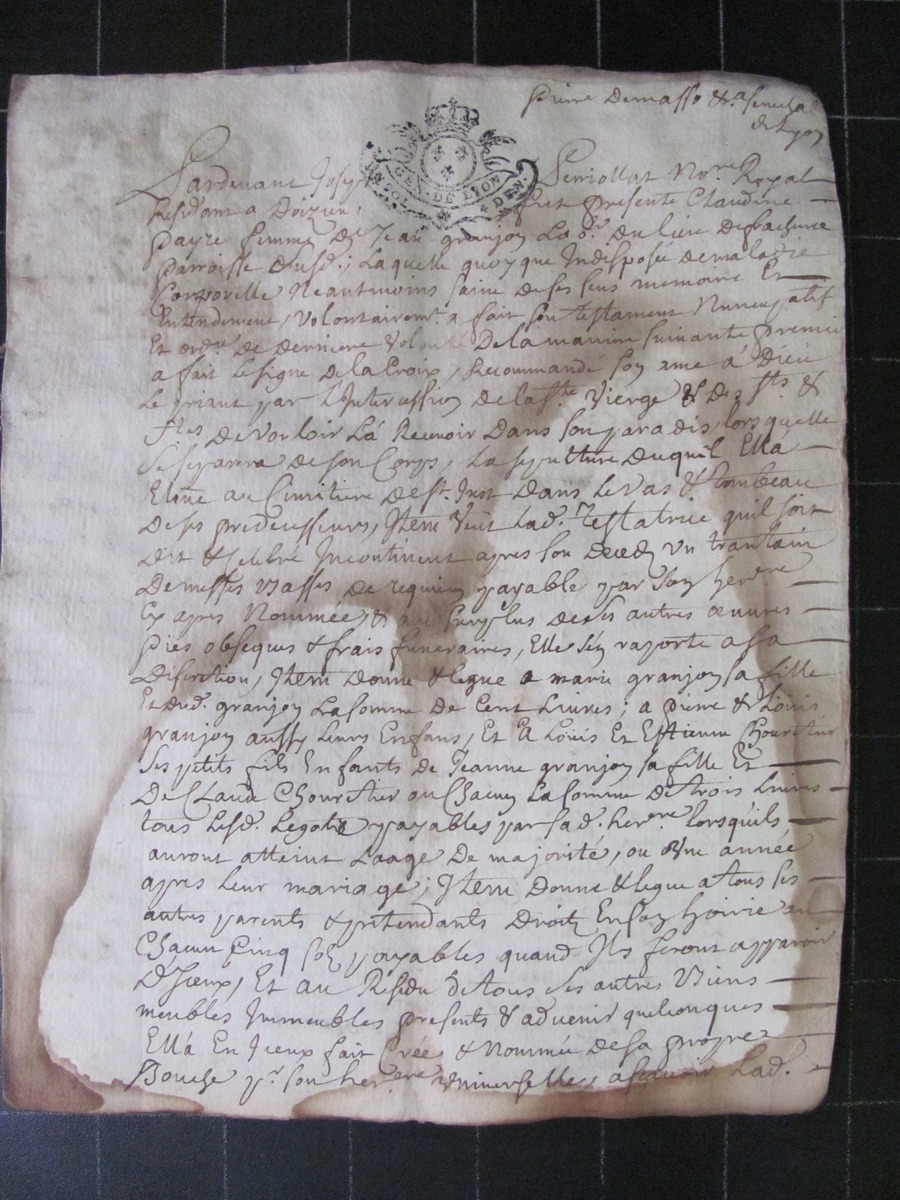 Pierre Demasso &a seneschal
de Lyon
GEN. DE LYON
DEN.
Pardevant Joseph Seriollat No.re Royal
Residant a Doizieu, fust presente Claudine
Payre femme De Jean granjon Lab.r du lieu
parroisse dud.; Laquelle quoyque Indisposée de maladie
Corporelle Neantmoins saine de ses sens memoire Et
Entendement, Volontairem.t a fait son Testament Nuncupatif
Et ord.ce de derniere Volonté De la maniere suivante premier
a fait le signe De la Croix, Recommandé son ame à Dieu
Le priant par L'Intercession De la s.te Vierge & Des s.ts &
s.tes de vouloir La Recevoir Dans son paradis, lorsquelle
se separera de son Corps, La sepulture Duquil Ella
Elüe au Cimitiere de s.t Just Dans le vas & tombeau
De ses predecesseurs, Item Veut Lad. Testatrice quil soit
Dit & Celebré Incontinent apres son Deced Un trantain
De messes Basses De requiem payable par son her.ere
Cy apres Nommée, & au surplus de ses autres œuvres
pies obseques & frais funeraires, Elle s'en raporte a sa
Discretion, Item Donne & legue a marie granjon sa fille
Et dud. granjon La somme De Cent Livres; a pierre & Louis
granjon aussy leurs Enfans, Et A Loüis Et Estienne Chouretier
ses petits fils Enfants de Jeanne granjon sa fille Et
De Claude Chouretier au Chacun La somme de trois Livres
tous Lesd. Legats payables par sad. her.ere lorsquils
auront atteint Laage De majorité, ou Une année
apres leur mariage; Item Donne & legue a tous ses
autres parents & pretendants Droit En son hoirie au
Chacun Cinq sols payables quand Ils feront apparoir
D'Iceux, Et au Residu de tous ses autres Biens
meubles Immeubles presents & advenir quelconques
Ella En Iceux fait Créé & Nommée de sa propre
Bouche p.r son her.ere Universelle, ascavoir Lad.